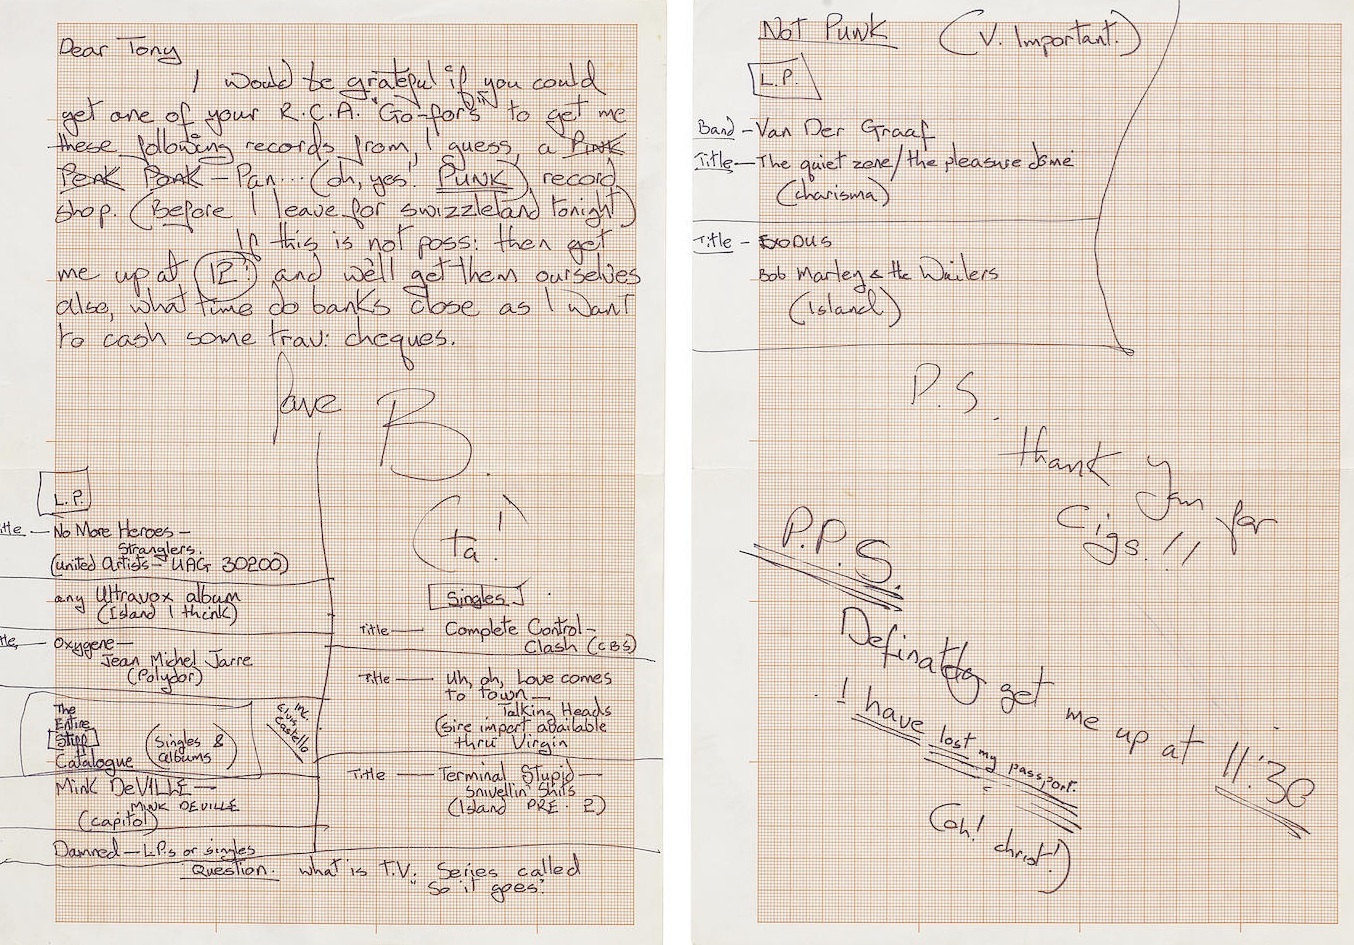 Dear Tony
I would be grateful if you could
get one of your R.C.A. "Go-fors" to get me
these following records from, I guess, a Pink
Penk Ponk - Pan... (oh, yes! PUNK) record
shop. (Before I leave for swizzleland tonight)
If this is not poss: then get
me up at 12: and we'll get them ourselves
also, what time do banks close as I want
to cash some trav: cheques.
Dave B.
(ta!)
L.P.
itle — No More Heroes —
Stranglers.
(united Artists - UAG 30200)
any Ultravox album
(Island I think)
tle, — Oxygene —
Jean Michel Jarre
(Polydor)
The
Entire
Stiff
Catalogue
(Singles &
albums)
inc.
Elvis
Costello
Mink DeVILLE —
MINK DEVILLE
(capitol)
Damned — L.P.s or singles
Singles
Title — Complete Control -
Clash (CBS)
Title — Uh, oh, Love comes
to town —
Talking Heads
(Sire import available
thru Virgin
Title — Terminal Stupid —
Snivellin' Shits
(Island PRE. 2)
Question. what is T.V. Series called
"So it goes."
NOT PUNK (V. Important.)
L.P.
Band - Van Der Graaf
Title — The quiet zone/the pleasure dome
(charisma)
Title - EXODUS
Bob Marley & the Wailers
(Island)
P.S.
thank you for
Cigs.!!
P.P.S.
Definatly get me up at 11'30
I have lost my passport.
(oh! christ!)